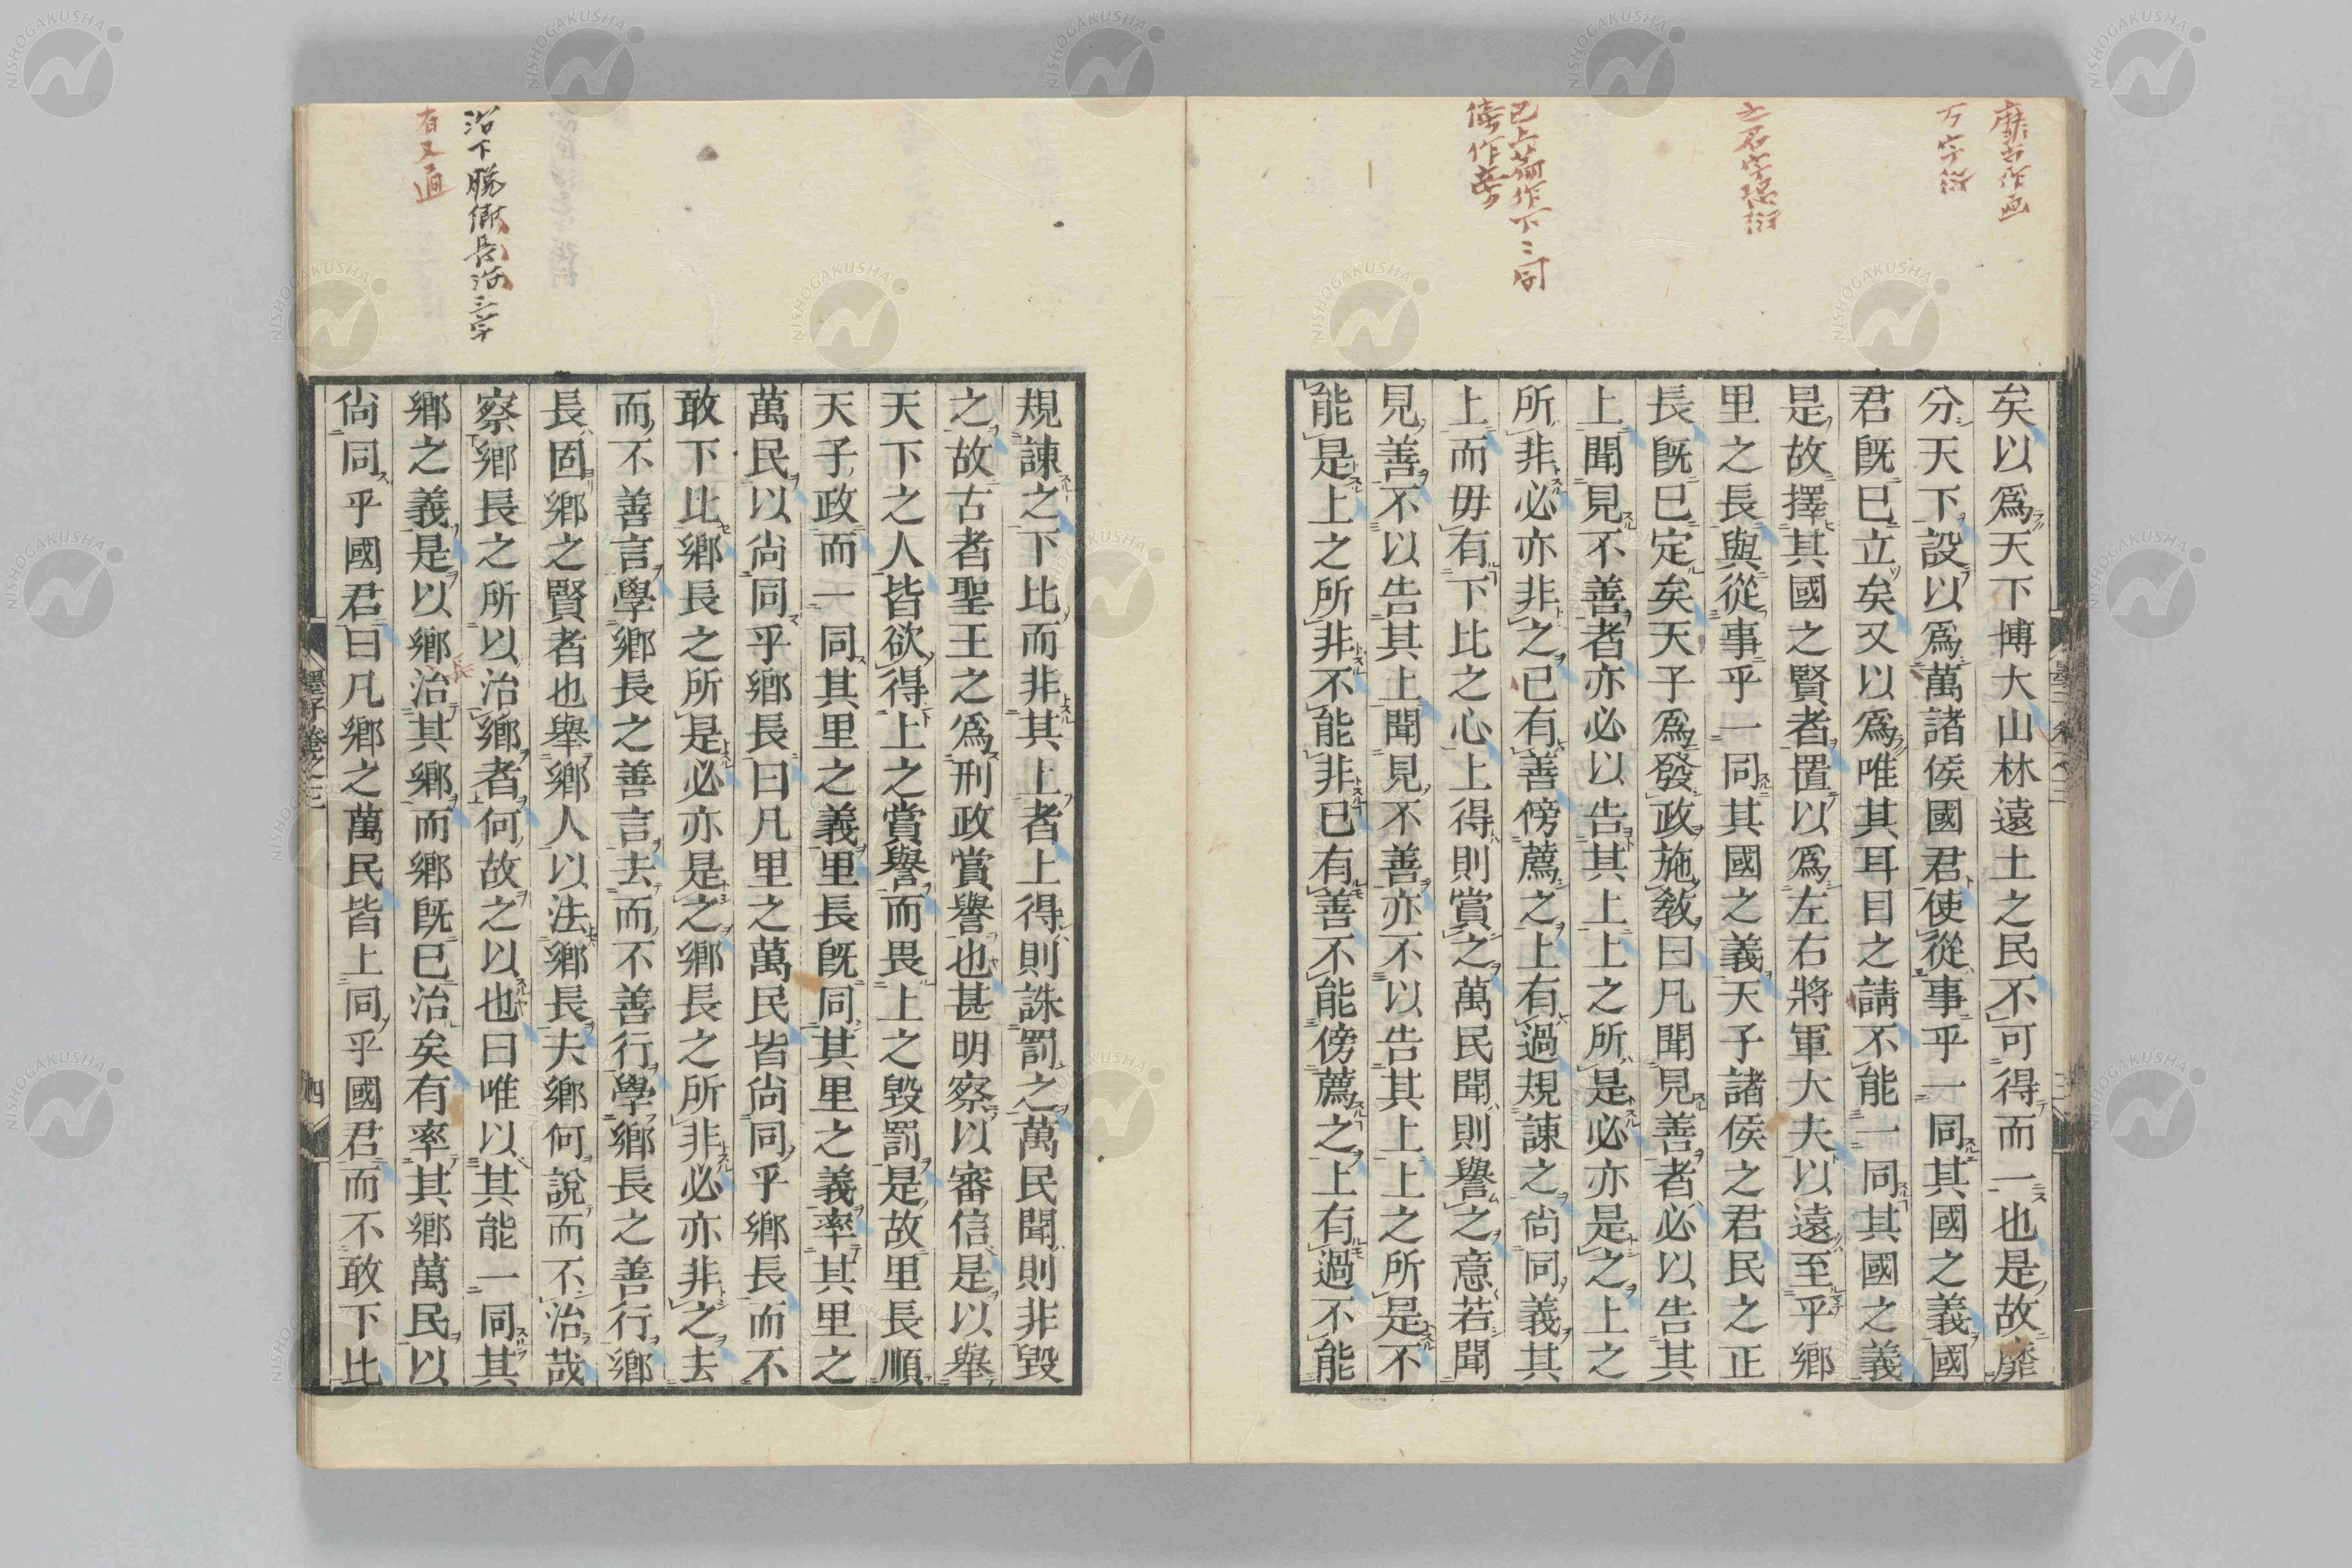 矣以爲天下博大山林遠土之民不可得而一也是故靡
分天下設以爲萬諸侯國君使從事乎一同其國之義國
君旣已立矣又以爲唯其耳目之請不能一同其國之義
是故擇其國之賢者置以爲左右將軍大夫以遠至乎鄉
里之長與從事乎一同其國之義天子諸侯之君民之正
長旣已定矣天子爲發政施敎曰凡聞見善者必以告其
上聞見不善者亦必以告其上上之所是必亦是之上之
所非必亦非之已有善傍薦之上有過規諫之尙同義其
上而毋有下比之心上得則賞之萬民聞則譽之意若聞
見善不以告其上聞見不善亦不以告其上上之所是不
能是上之所非不能非已有善不能傍薦之上有過不能
規諫之下比而非其上者上得則誅罰之萬民聞則非毀
之故古者聖王之爲刑政賞譽也甚明察以審信是以舉
天下之人皆欲得上之賞譽而畏上之毀罰是故里長順
天子政而一同其里之義里長旣同其里之義率其里之
萬民以尙同乎鄉長曰凡里之萬民皆尙同乎鄉長而不
敢下比鄉長之所是必亦是之鄉長之所非必亦非之去
而不善言學鄉長之善言去而不善行學鄉長之善行鄉
長固鄉之賢者也舉鄉人以法鄉長夫鄉何說而不治哉
察鄉長之所以治鄉者何故之以也曰唯以其能一同其
鄉之義是以鄉治其鄉而鄉旣已治矣有率其鄉萬民以
尙同乎國君曰凡鄉之萬民皆上同乎國君而不敢下比
墨子卷之三
四
万字衍
之君字恐衍
傍作旁
有又通
NISHOGAKUSHA